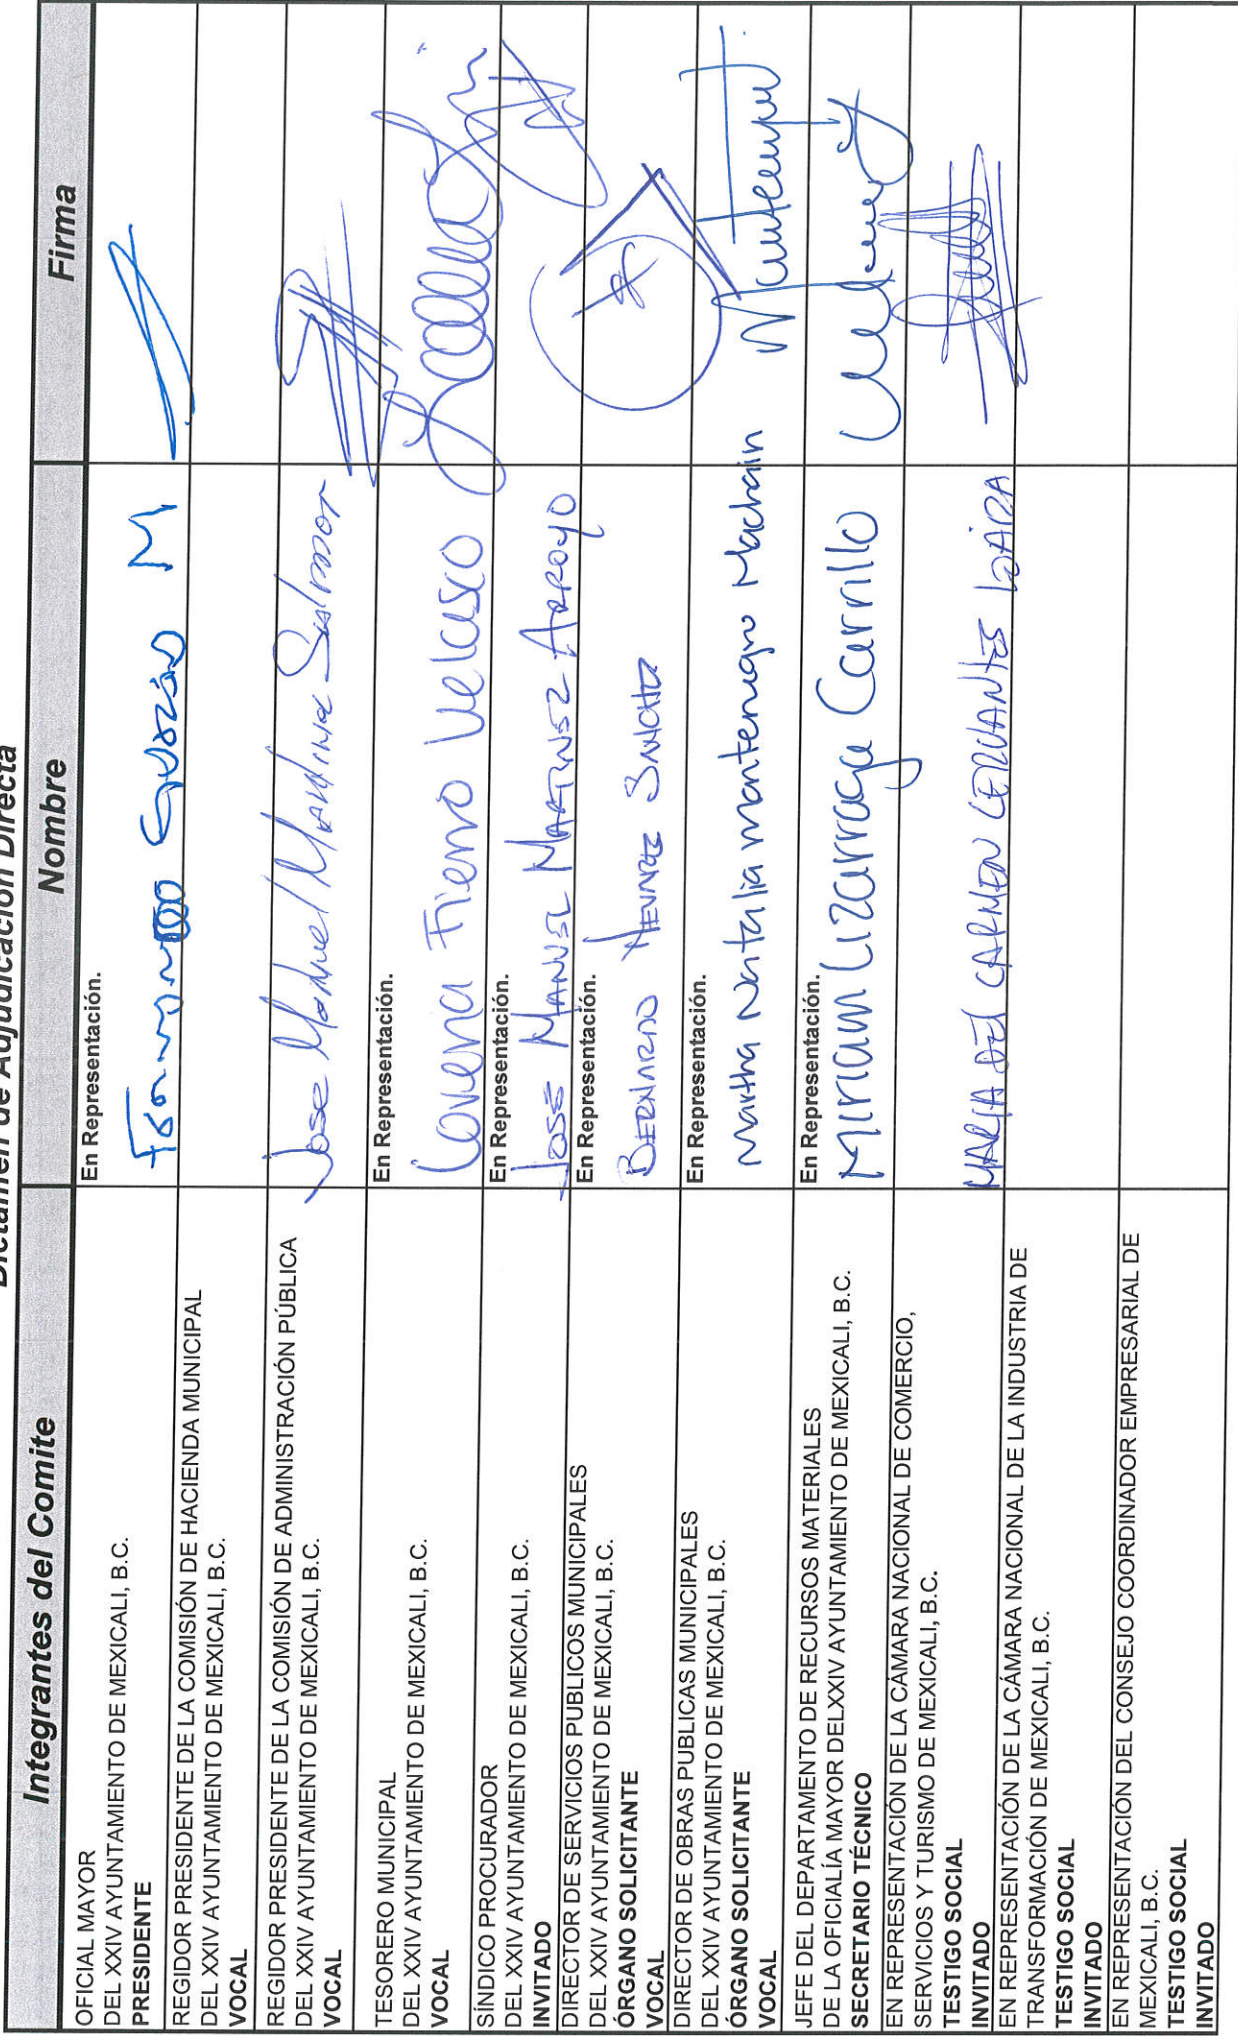 Dictamen de Adjudicación Directa
Integrantes del Comite
Nombre
Firma
OFICIAL MAYOR
DEL XXIV AYUNTAMIENTO DE MEXICALI, B.C.
PRESIDENTE
En Representación.
Fernando Guzmán M
REGIDOR PRESIDENTE DE LA COMISIÓN DE HACIENDA MUNICIPAL
DEL XXIV AYUNTAMIENTO DE MEXICALI, B.C.
VOCAL
REGIDOR PRESIDENTE DE LA COMISIÓN DE ADMINISTRACIÓN PÚBLICA
DEL XXIV AYUNTAMIENTO DE MEXICALI, B.C.
VOCAL
Jose Manuel
TESORERO MUNICIPAL
DEL XXIV AYUNTAMIENTO DE MEXICALI, B.C.
VOCAL
En Representación.
Lorena Fierro Velasco
SÍNDICO PROCURADOR
DEL XXIV AYUNTAMIENTO DE MEXICALI, B.C.
INVITADO
En Representación.
JOSÉ MANUEL MARTINEZ ARROYO
DIRECTOR DE SERVICIOS PUBLICOS MUNICIPALES
DEL XXIV AYUNTAMIENTO DE MEXICALI, B.C.
ÓRGANO SOLICITANTE
VOCAL
En Representación.
BERNARDO SANCHEZ
DIRECTOR DE OBRAS PUBLICAS MUNICIPALES
DEL XXIV AYUNTAMIENTO DE MEXICALI, B.C.
ÓRGANO SOLICITANTE
VOCAL
En Representación.
Martha Natalia montenegro Machain
JEFE DEL DEPARTAMENTO DE RECURSOS MATERIALES
DE LA OFICIALÍA MAYOR DEL XXIV AYUNTAMIENTO DE MEXICALI, B.C.
SECRETARIO TÉCNICO
En Representación.
Miriam Lizarraga Carrillo
EN REPRESENTACIÓN DE LA CÁMARA NACIONAL DE COMERCIO,
SERVICIOS Y TURISMO DE MEXICALI, B.C.
TESTIGO SOCIAL
INVITADO
MARIA DEL CARMEN CERVANTES LARA
EN REPRESENTACIÓN DE LA CÁMARA NACIONAL DE LA INDUSTRIA DE
TRANSFORMACIÓN DE MEXICALI, B.C.
TESTIGO SOCIAL
INVITADO
EN REPRESENTACIÓN DEL CONSEJO COORDINADOR EMPRESARIAL DE
MEXICALI, B.C.
TESTIGO SOCIAL
INVITADO